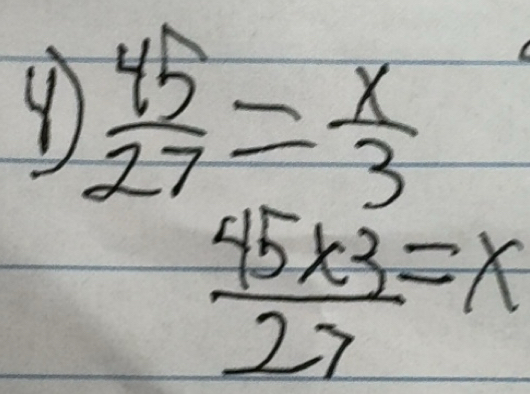 4) 45/27 = x/3
45x3/27 = x